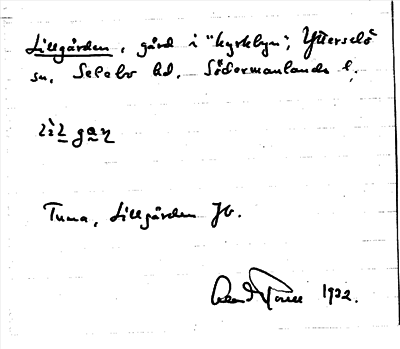 Lillgården, gård i "kyrkbyn", Ytterselö
sn. Selebo hd. Södermanlands l.
Tuna, Lillgården Jb.
1922.